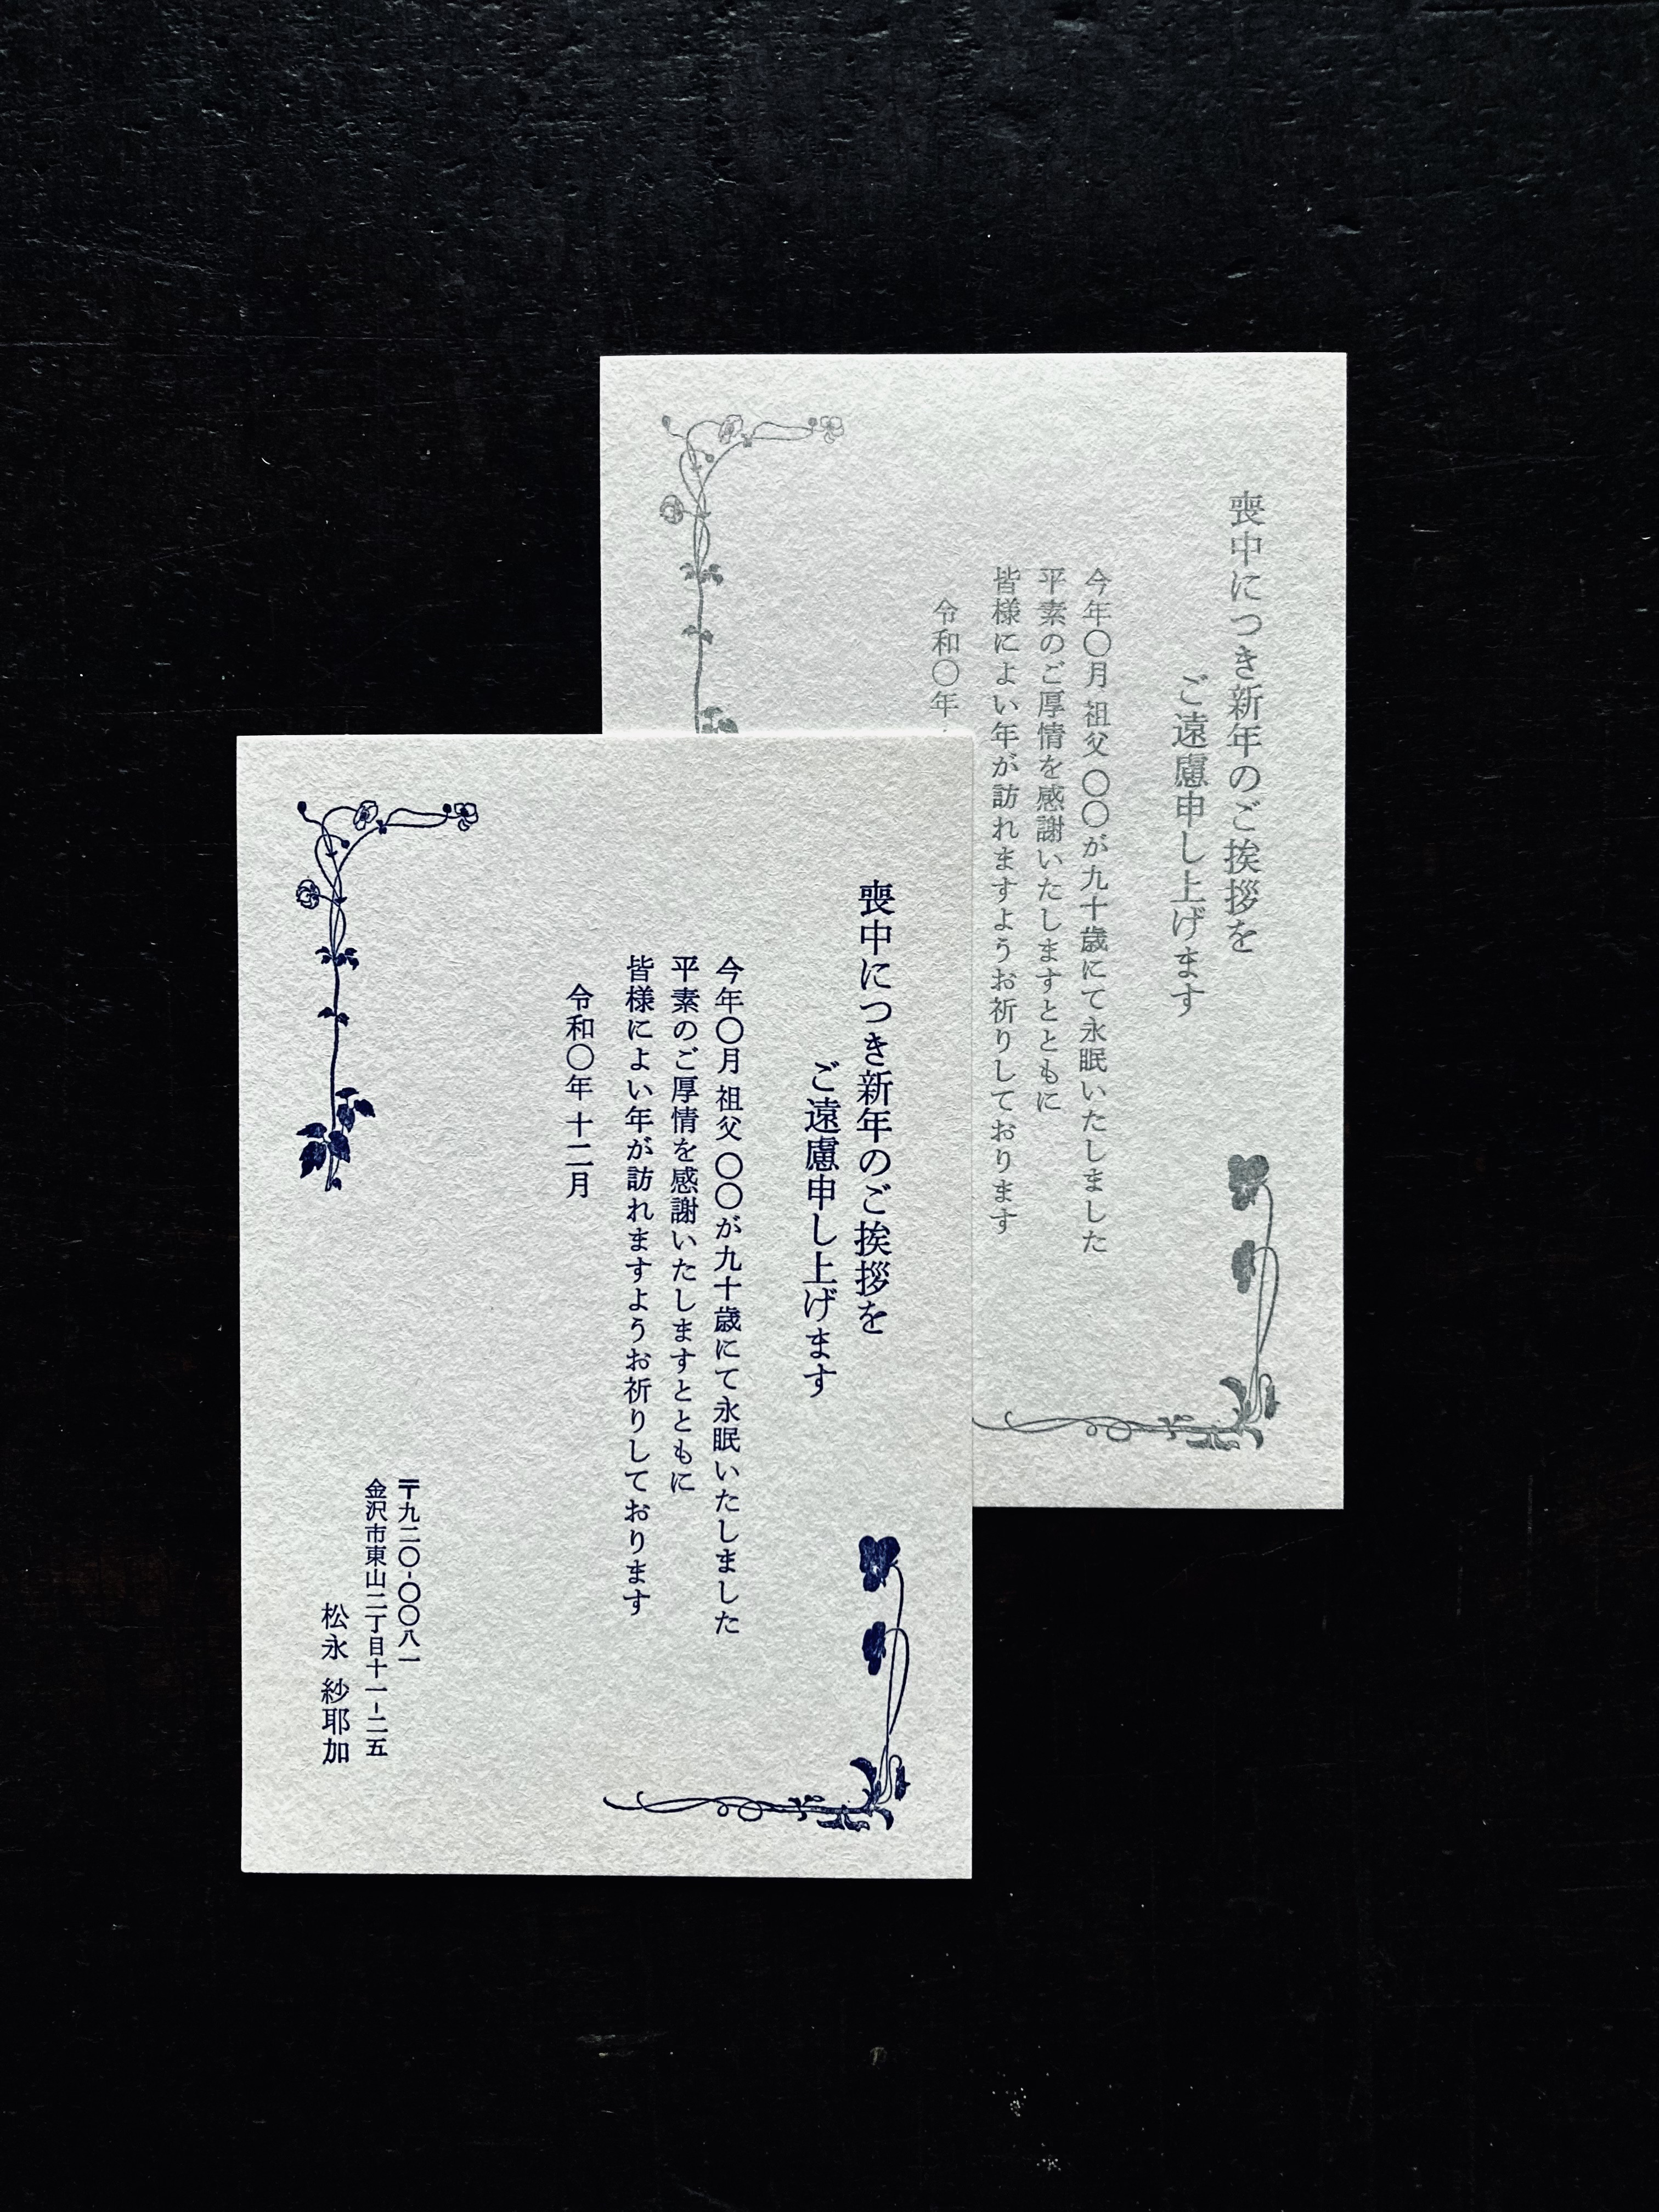 喪中につき新年のご挨拶を
ご遠慮申し上げます
今年〇月 祖父 〇〇が九十歳にて永眠いたしました
平素のご厚情を感謝いたしますとともに
皆様によい年が訪れますようお祈りしております
令和〇年 十二月
〒九二〇-〇〇八一
金沢市東山二丁目十一-二五
松永 紗耶加
喪中につき新年のご挨拶を
ご遠慮申し上げます
今年〇月 祖父 〇〇が九十歳にて永眠いたしました
平素のご厚情を感謝いたしますとともに
皆様によい年が訪れますようお祈りしております
令和〇年